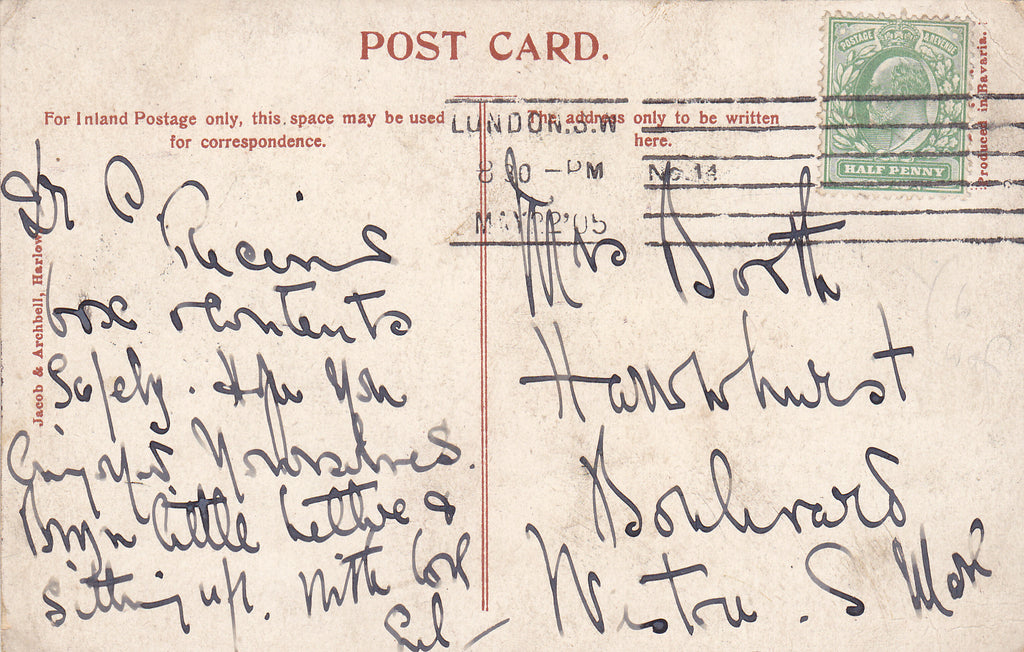 POST CARD.
For Inland Postage only, this space may be used
for correspondence.
The address only to be written
here.
POSTAGE & REVENUE
HALF PENNY
Produced in Bavaria.
Jacob & Archbell, Harlow
LONDON.S.W
8 30 - PM
MAY 22 '05
No. 14
Dr C
Received
box & contents
Safely. Hope you
Enjoyed Yourselves.
little better &
Sitting up. With love
Mrs Booth
Hawwhurst
Boulevard
Weston. S Mare